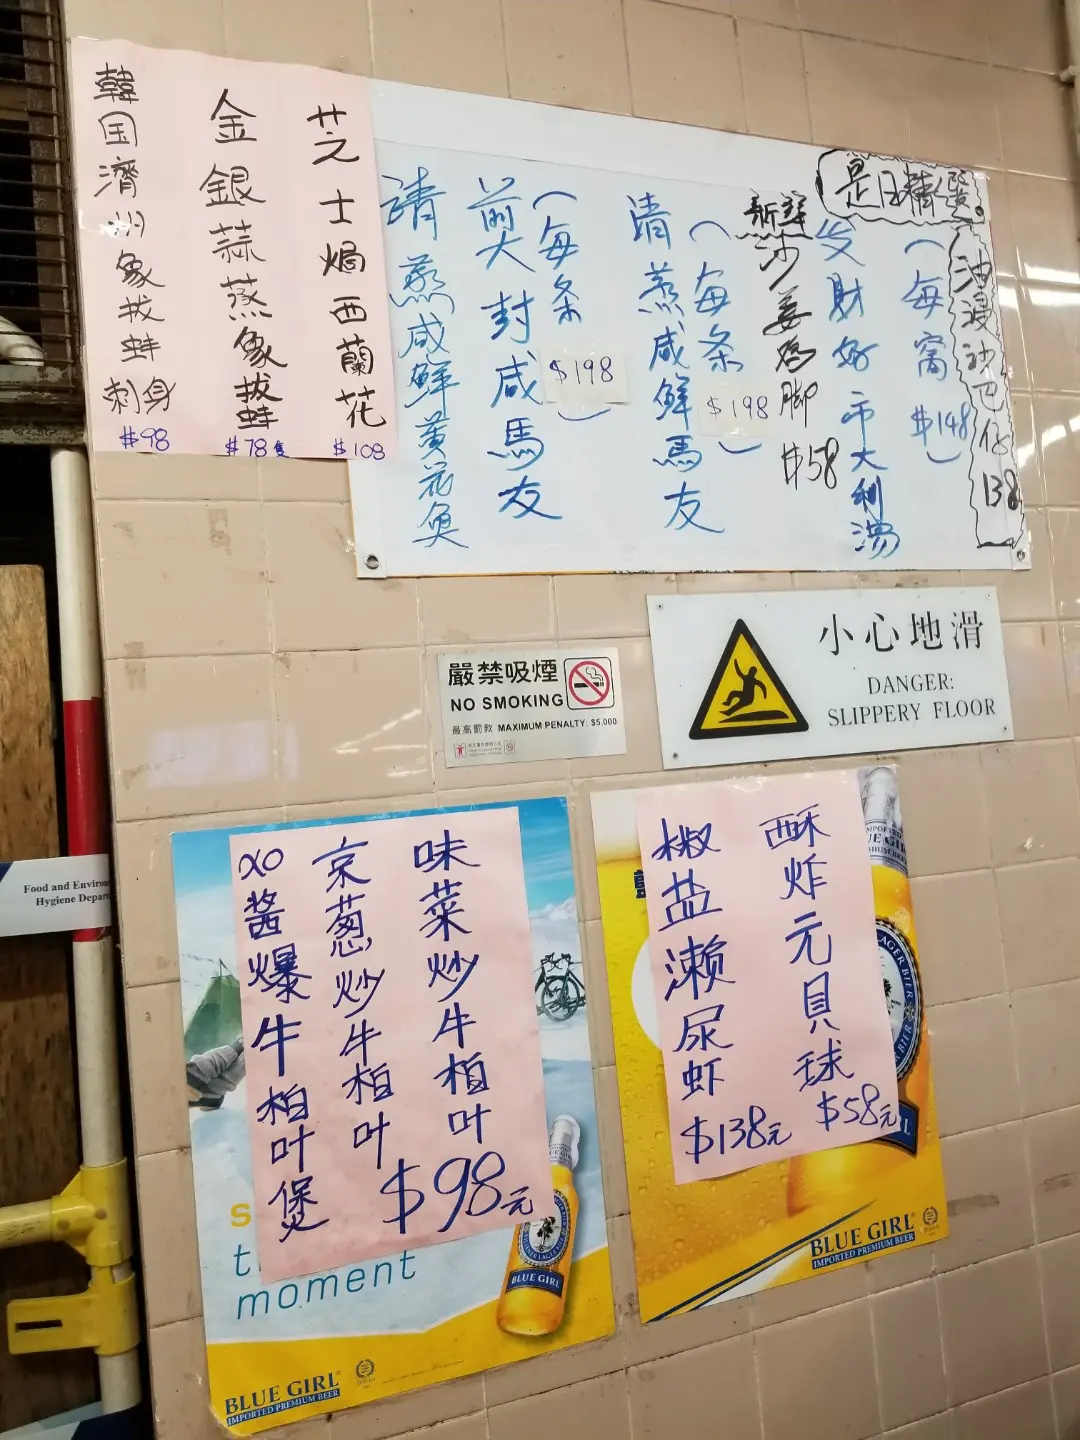 是日精選
油浸沙巴仔138
(每窩$148)
发財好市大利湯
新鮮沙姜鸡脚$58
(每条$198)
清蒸咸鲜馬友
(每条$198)
煎封咸馬友
清蒸咸鲜黄花魚
芝士焗西蘭花$108
金銀蒜蒸象拔蚌$78隻
韓国濟州象拔蚌刺身$98
嚴禁吸煙
NO SMOKING
最高罰款 MAXIMUM PENALTY: $5,000
小心地滑
DANGER:
SLIPPERY FLOOR
Food and Environ
Hygiene Depar
味菜炒牛柏叶
京葱炒牛柏叶
XO酱爆牛柏叶煲
$98元
moment
BLUE GIRL
BLUE GIRL
IMPORTED PREMIUM BEER
酥炸元貝球$58元
椒盐濑尿虾$138元
LAGER BIER
BLUE GIRL
IMPORTED PREMIUM BEER